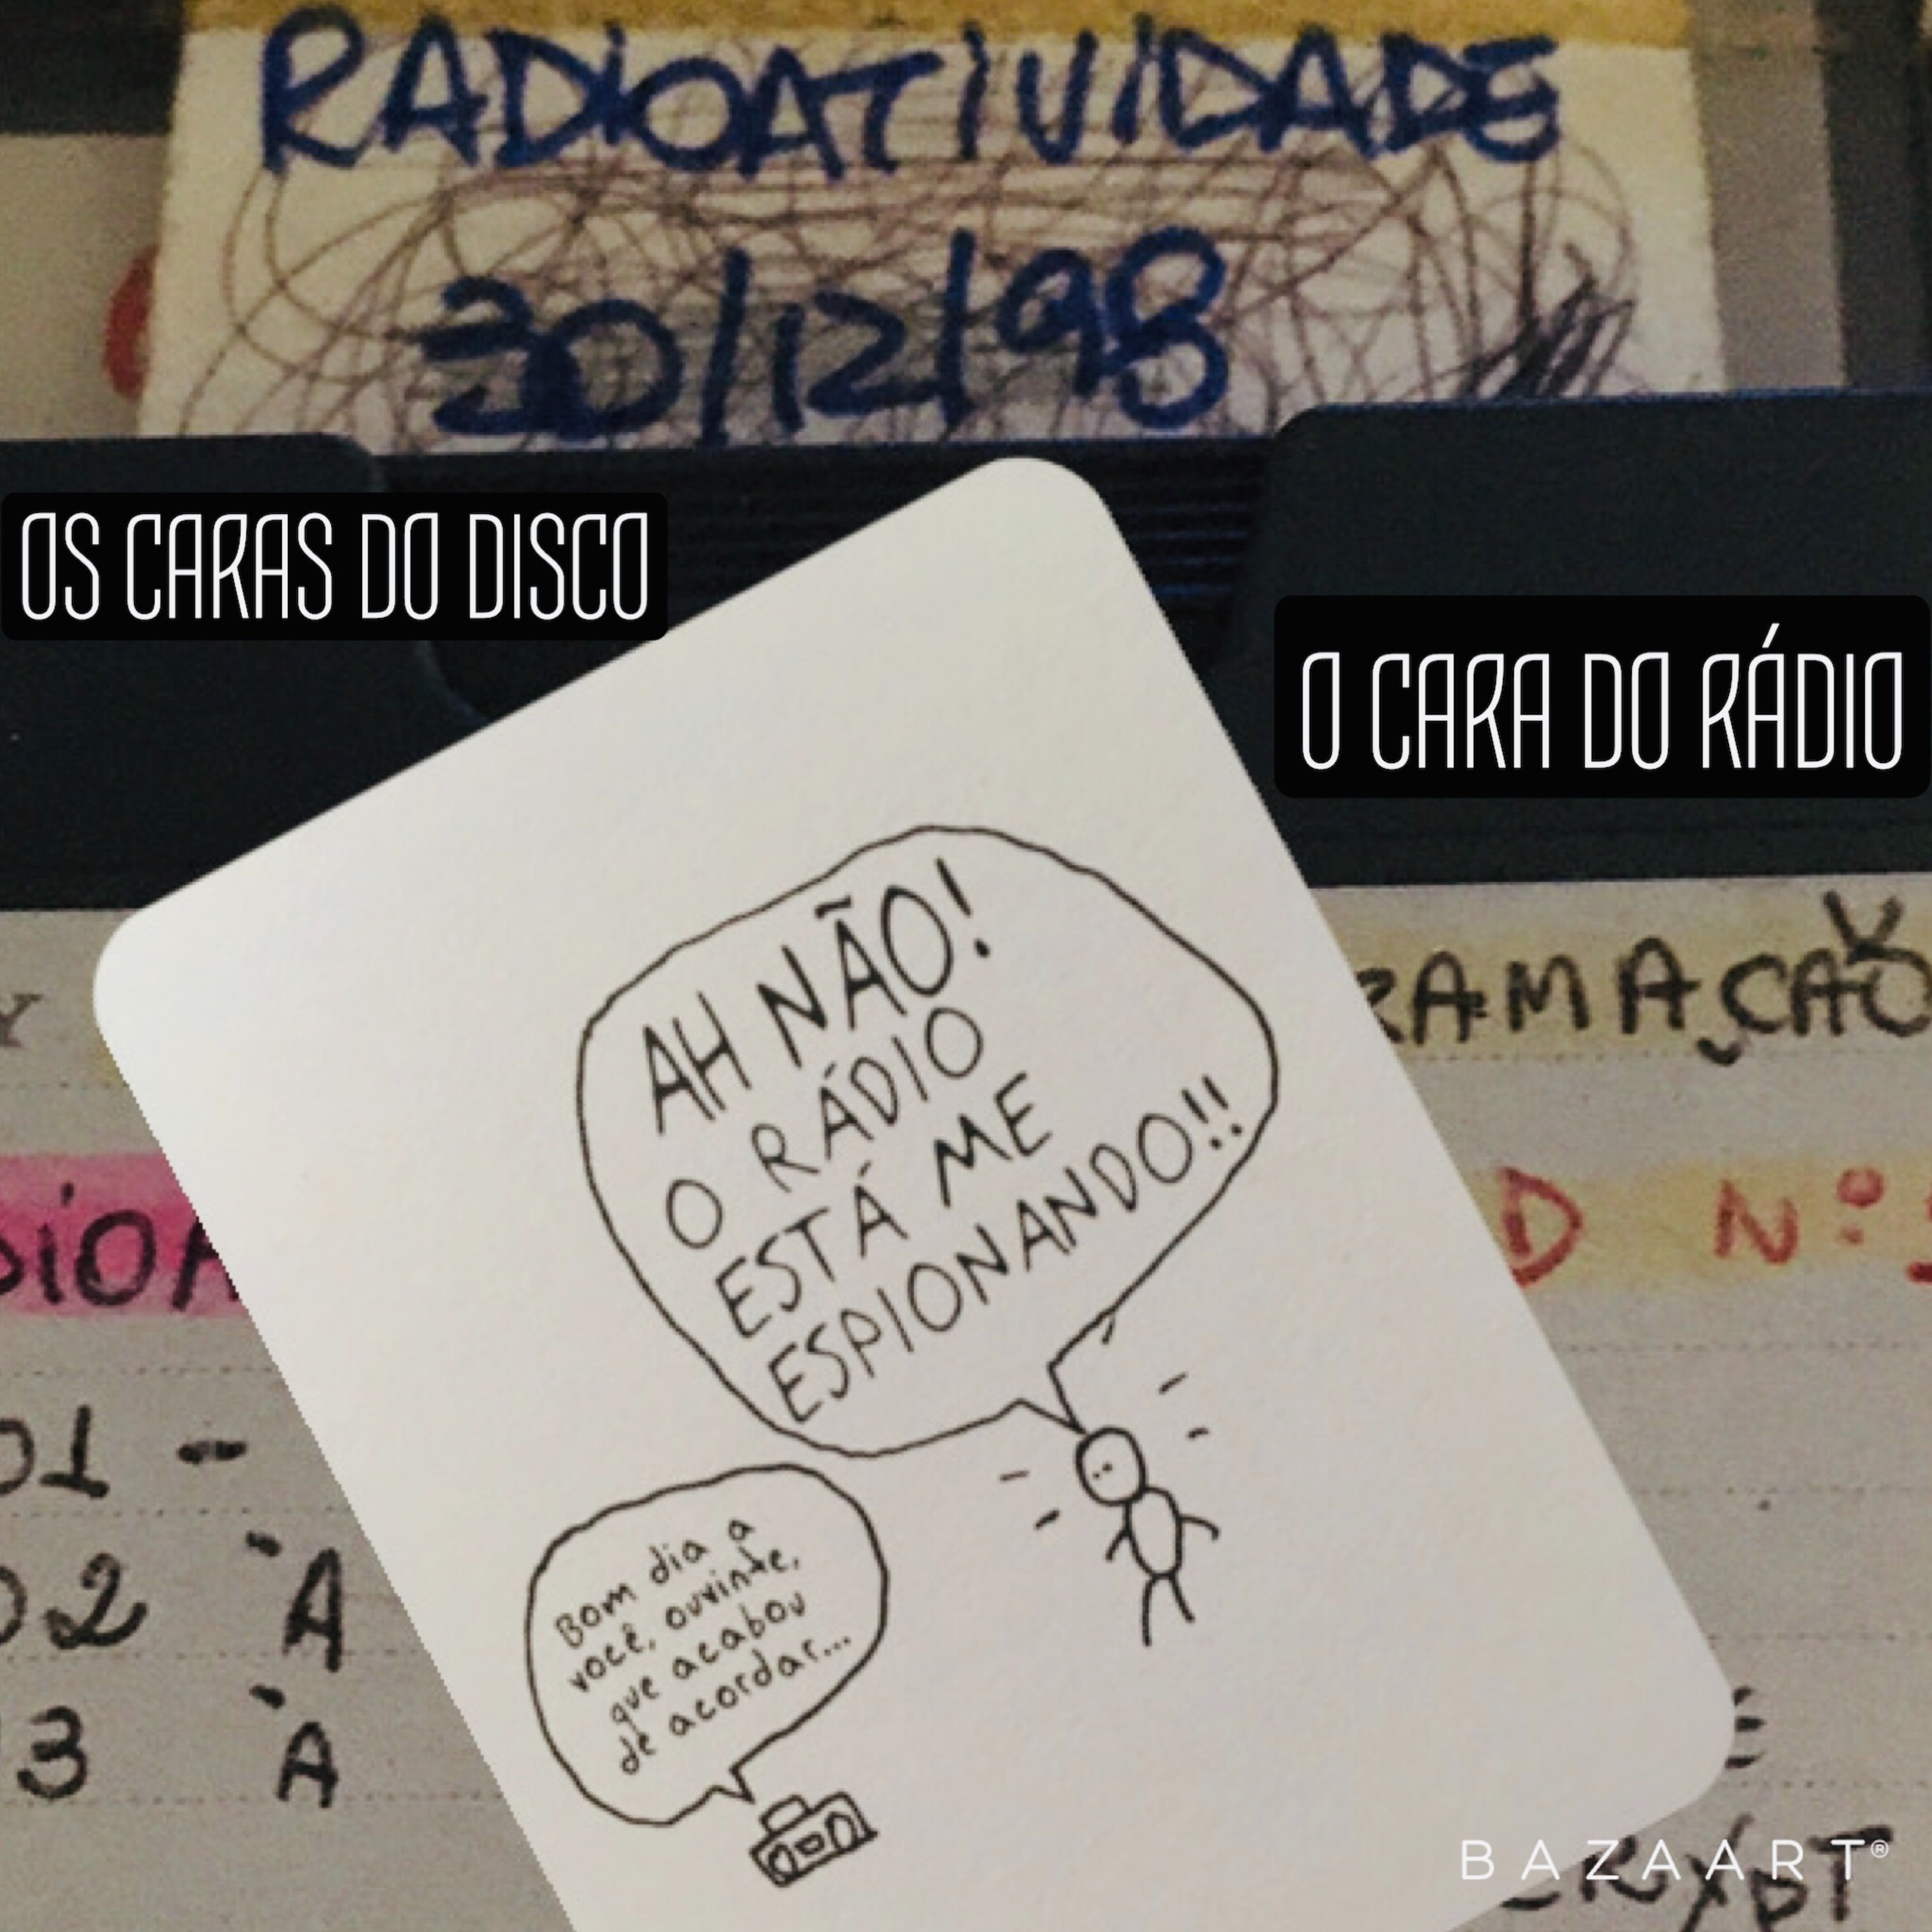 RADIOATIVIDADE
30/12/98
OS CARAS DO DISCO
O CARA DO RÁDIO
AH NÃO!
O RÁDIO
ESTÁ ME
ESPIONANDO!!
Bom dia a
você, ouvinte,
que acabou
de acordar...
RAMAÇÃO
DIOA
D Nº
01 -
02 À
3 À
BAZAART®